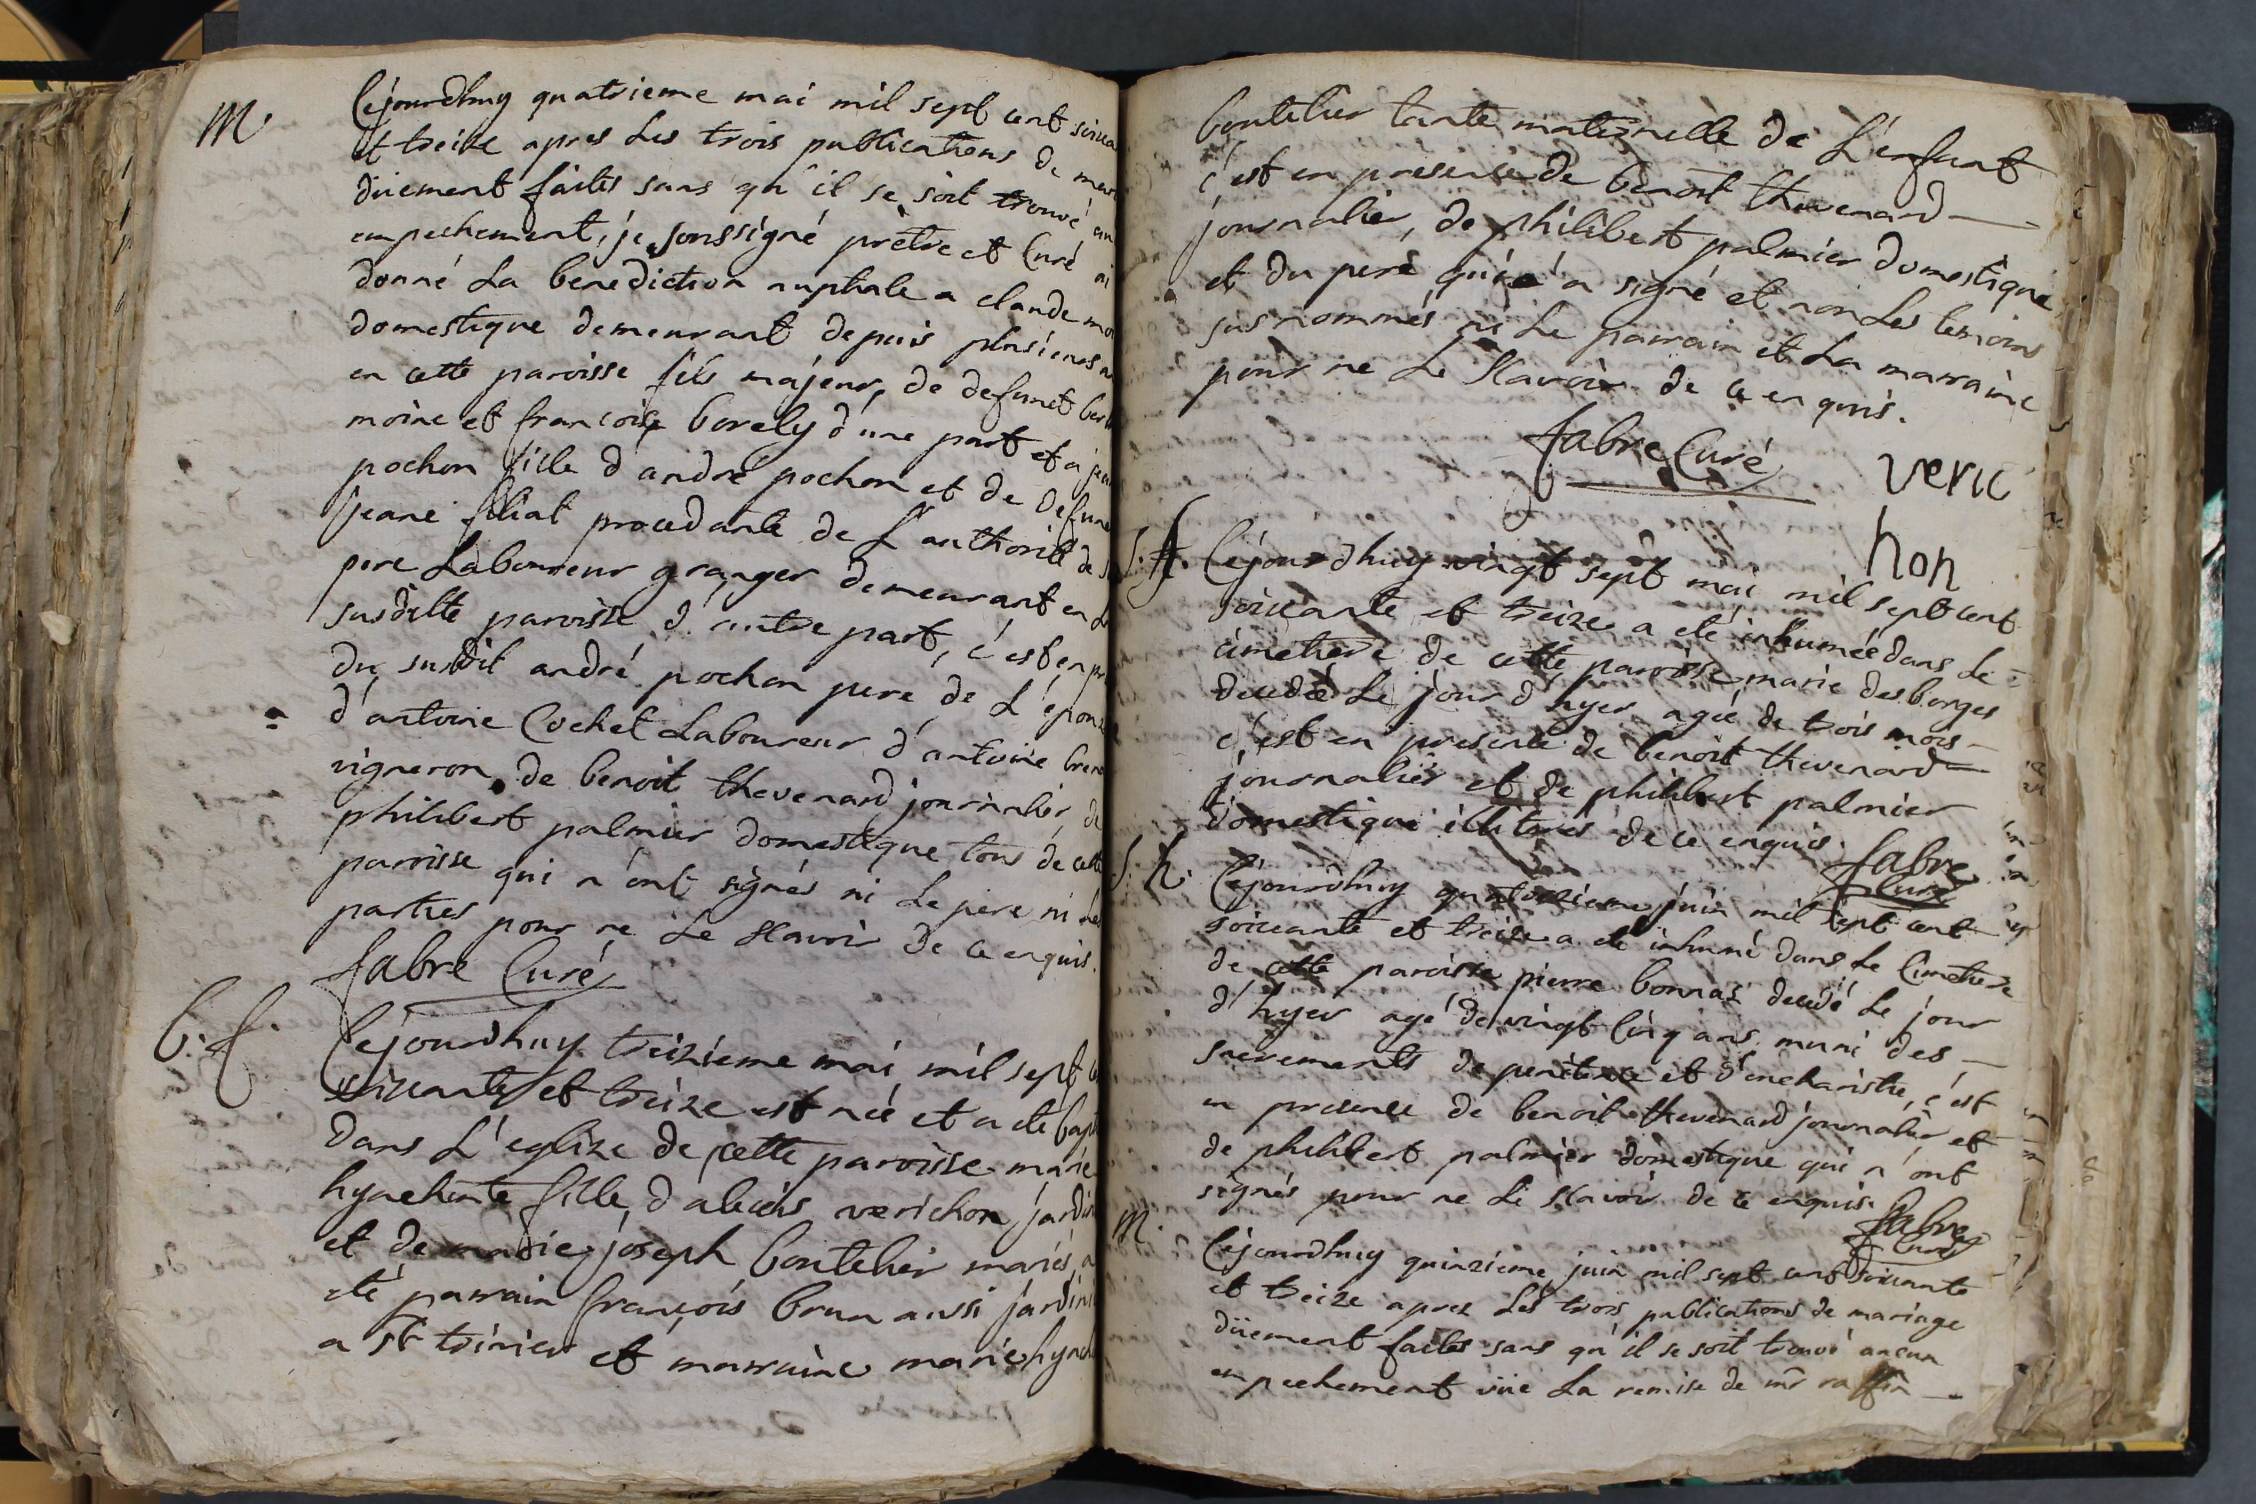 M.
Cejourdhuy quatrieme mai mil sept cent soixa
et treize apres les trois publications de mari
düement faites sans qu'il se soit trouvé au
empechement, je soussigné prêtre et Curé ai
donné la benediction nuptiale a claude moi
domestique demeurant depuis plusieurs an
en cette paroisse fils majeur, de defunct ber
moine et francoise borely d'une part et a jea
pochon fille d'andré pochon et de defun
jeane filiat procedante de l'authorité de s
pere Laboureur granger demeurant en la
susditte paroisse d'autre part, c'est en pr
du susdit andré pochon pere de L'épouse
d'antoine Cochet Laboureur d'antoine brun
vigneron, de benoit thevenard journalier de
philibert palmier domestique tous de cette
paroisse qui n'ont signés ni le pere ni les
parties pour ne le sçavoir de ce enquis.
fabre Curé
b. f.
Cejourdhuy treizieme mai mil sept ce
soixante et treize est née et a eté bapt
dans L'eglize de cette paroisse marie
hyachinte fille d'alexis verichon jardin
et de marie joseph bontelier mariés, a
eté parrain françois brun aussi jardini
a st trivier et marraine marie hyach
bontelier tante maternelle de L'enfant
c'est en presence de benoit thevenard
journalier, de philibert palmier domestique
et du pere qui a signé et non les temoins
sus nommés ni le parrain et la marraine
pour ne le sçavoir de ce enquis.
fabre Curé
veric
hon
s. f.
Cejourdhuy vingt sept mai mil sept cent
soixante et treize a eté inhumée dans le
cimetiere de cette paroisse marie desborges
decedée le jour d'hyer agée de trois mois
c'est en presence de benoit thevenard
journalier et de philibert palmier
domestique illiterés de ce enquis. fabre
Curé
s. h.
Cejourdhuy quatorzieme juin mil sept cent
soixante et treize a eté inhumé dans le Cimetiere
de cette paroisse pierre bonnas decedé le jour
d'hyer agé de vingt cinq ans muni des
sacrements de penitence et d'eucharistie, c'est
en presence de benoit thevenard journalier et
de philibert palmier domestique qui n'ont
signés pour ne le sçavoir de ce enquis. fabre
Curé
M.
Cejourdhuy quinzieme juin mil sept cent soixante
et treize apres les trois publications de mariage
düement faites sans qu'il se soit trouvé aucun
empechement vüe la remise de mr raffin